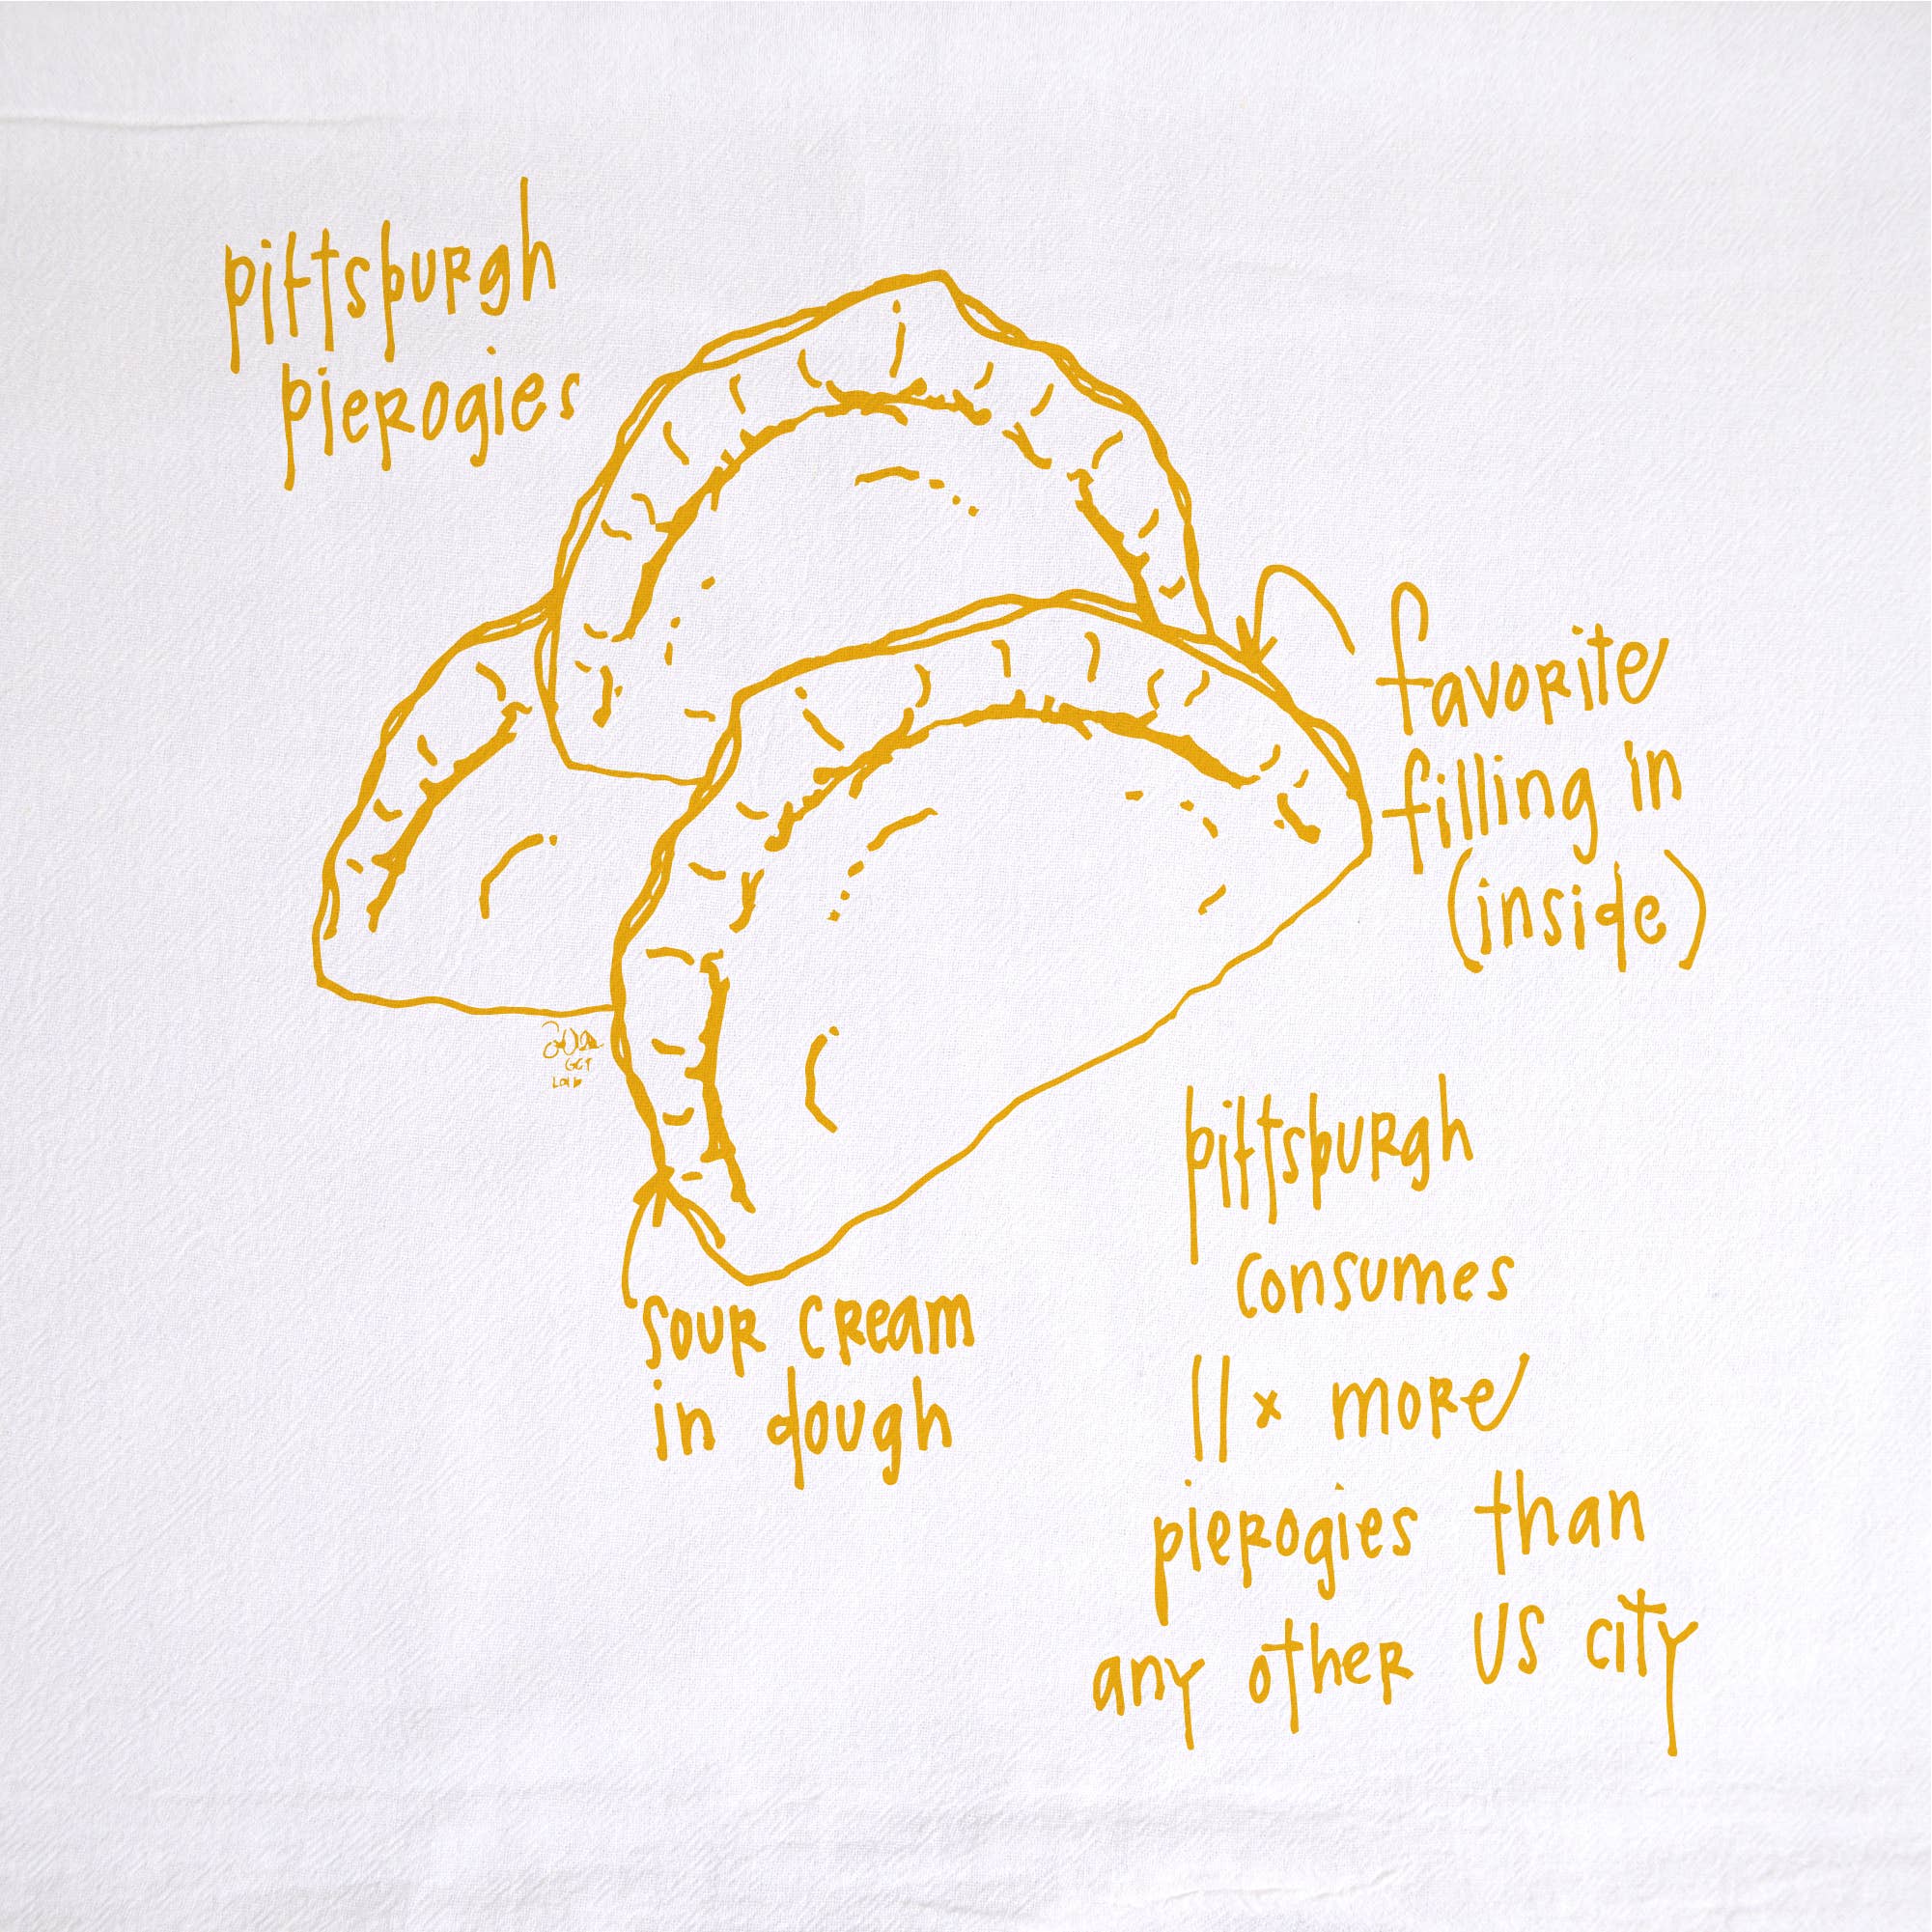 pittsburgh
pierogies
favorite
filling in
(inside)
sour cream
in dough
pittsburgh
consumes
11x more
pierogies than
any other US city